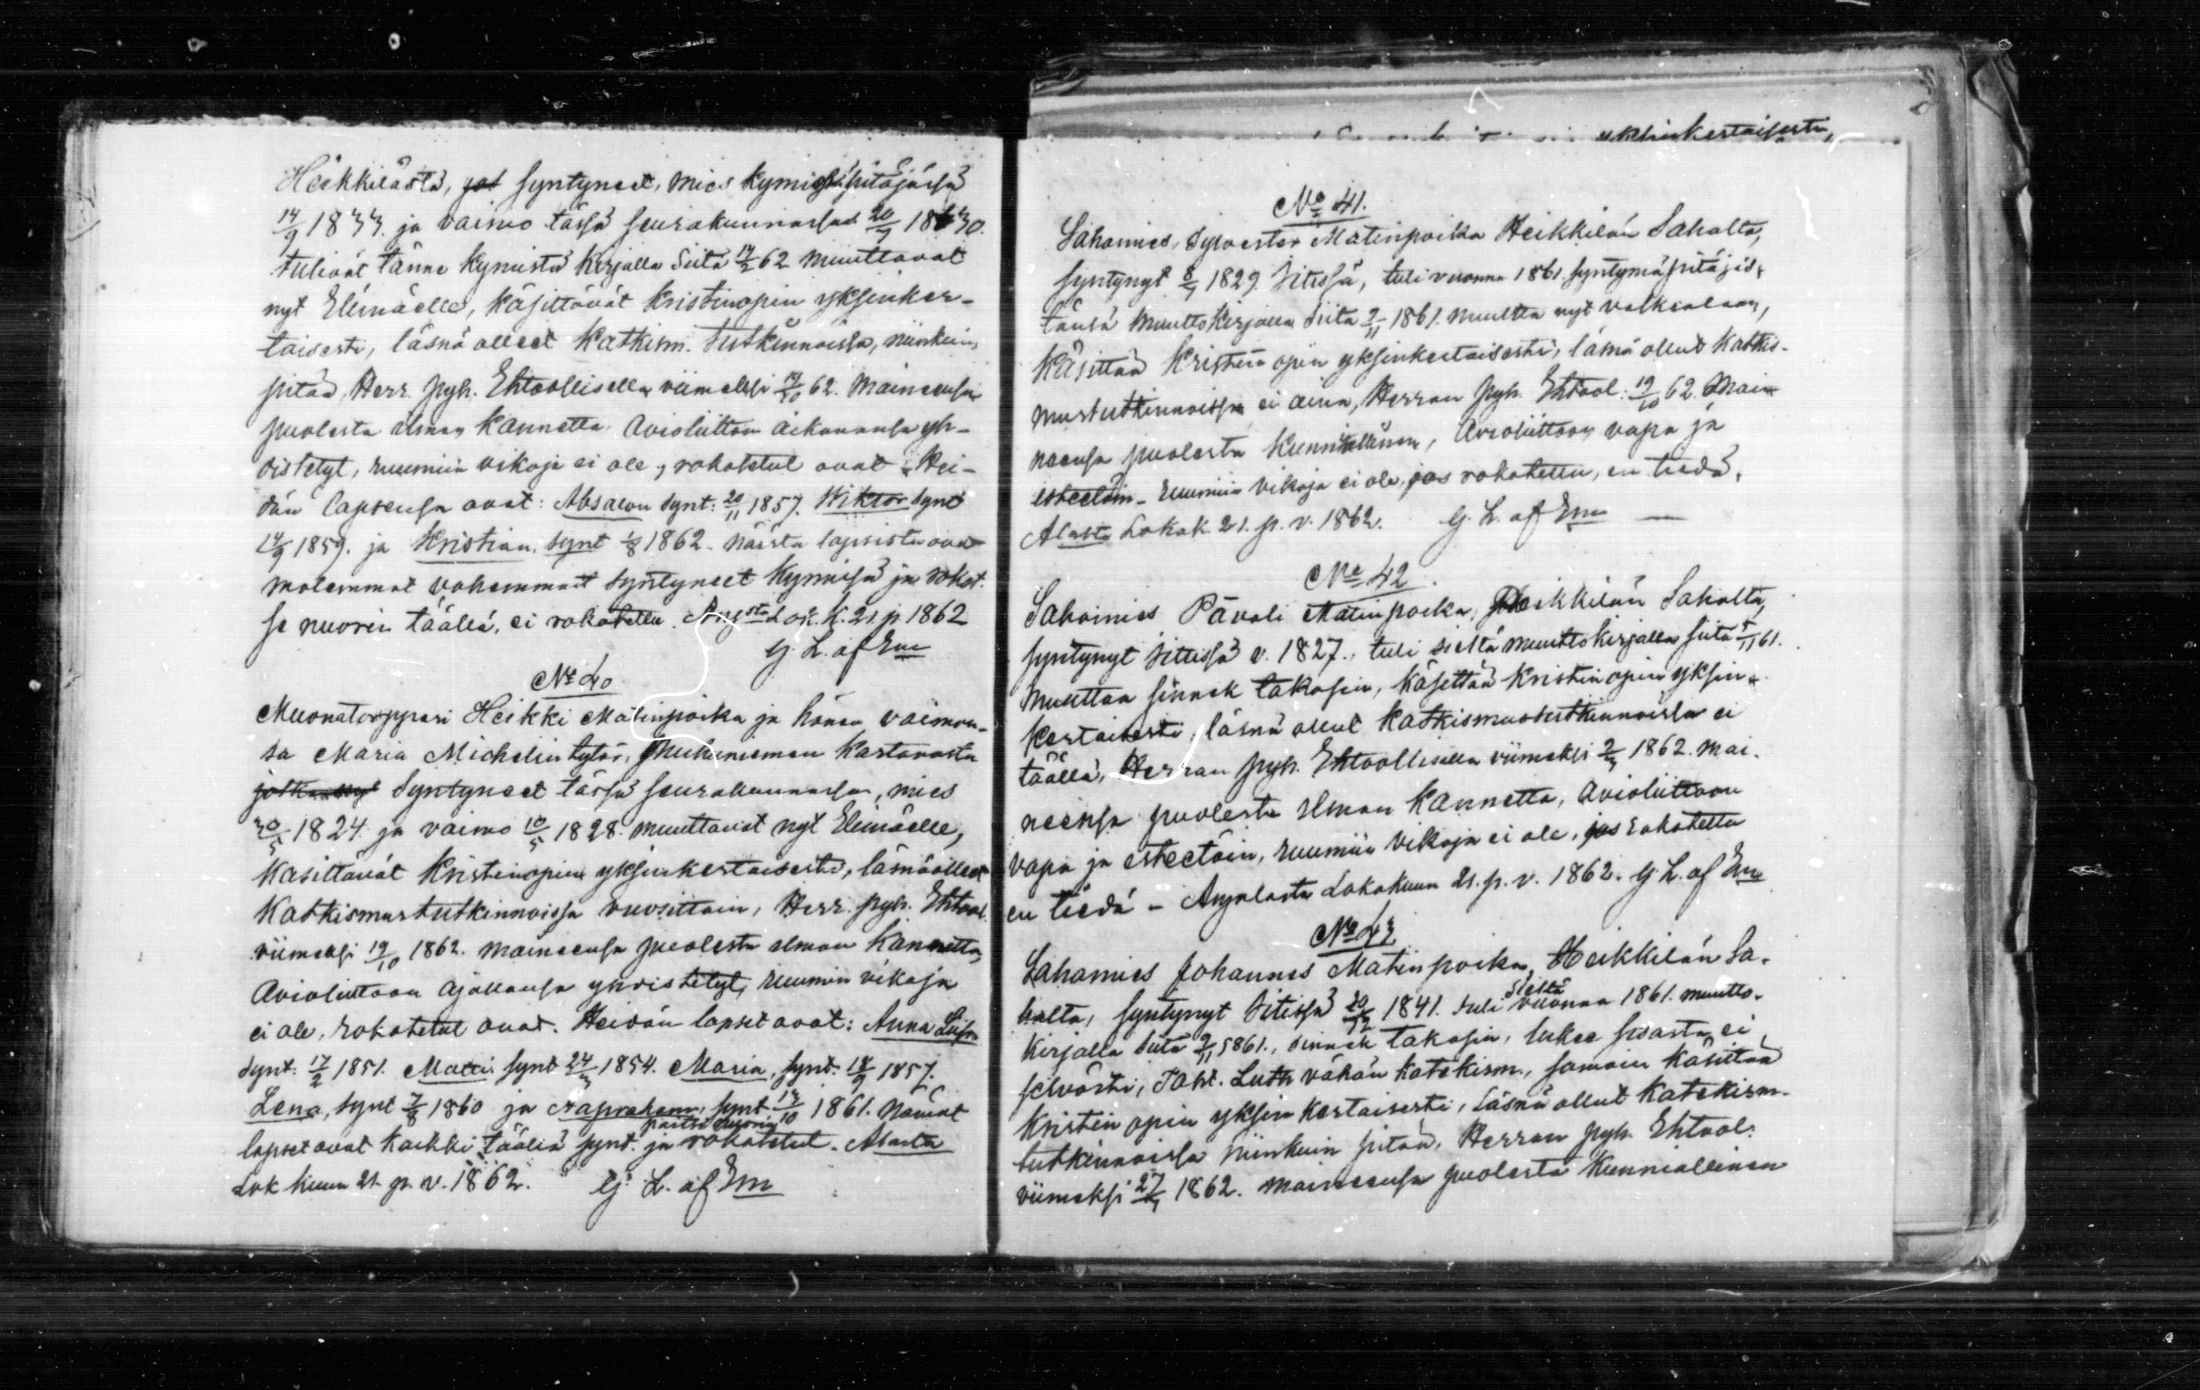 Heikkilästä, jot syntyneet, mies Kymissä pitäjässä
14/9 1833. ja vaimo tässä seurakunnassa 20/7 1830.
tulivat tänne Kymistä Kirjalla siitä 14/2 62 muuttavat
nyt Elimäelle, Käsittävät Kristinopin yksinker-
taisesti, läsnä olleet Katkism. tutkinnoissa, niinkuin
pitää, Herr. pyh. Ehtoollisella viimeksi 19/10 62. Maineensa
puolesta ilman Kannetta Avioliittoon aikanansa yh-
distetyt, ruumiin vikoja ei ole, rokotetut ovat. Hei-
dän lapsensa ovat: Absalon synt: 20/11 1857. Wiktor synt
14/9 1859. ja Kristian, synt 1/8 1862. näistä lapsista ovat
molemmat vahemmat syntyneet Kymissä ja rokot.
se nuorin täällä, ei rokotettu. Lok. K. 21. p 1862
G. L. af Em
No 40
Muonatorppari Heikki Matinpoika ja hänen vaimon-
sa Maria Michelintytär, Muhniemen Kartanosta
syntyneet tässä seurakunnassa, mies
30/5 1824 ja vaimo 10/5 1828. muuttavat nyt Elimäelle,
Käsittävät Kristinopin yksinkertaisesti, läsnäolleet
Katkismustutkinnoissa vuosittain, Herr. pyh. Ehtool.
viimeksi 19/10 1862. maineensa puolesta ilman Kannetta,
Avioliittoon ajallansa yhdistetyt, ruumin vikoja
ei ole, rokotetut ovat. Heidän lapset ovat: Anna Liisa
synt: 17/2 1851. Matti synt 24/3 1854. Maria, synt: 18/9 1857.
Lena, synt 7/8 1860 ja Aapraham, synt. 13/10 1861. Nämät
lapset ovat Kaikki täällä synt. ja paitse nuorin rokotetut. Alasta
Lok kuun 21. p. v. 1862. G. L. af Em
yksinkertaisesti,
No 41.
Sahamies, Sylvester Matinpoika Heikkilän Sahalta,
syntynyt 8/7 1829. Iitissä, tuli vuonna 1861. syntymäpitäjäs-
tänsä Muuttokirjalla siitä 9/11 1861. muutta nyt Valkealaan,
Käsittää Kristin opin yksinkertaisesti, läsnä ollut Katkis-
mustutkinnoissa ei aina, Herran pyh. Ehtool: 19/10 62. Mai-
neensa puolesta Kunniallinen, Avioliittoon vapa ja
esteetöin - ruumiin vikoja ei ole, jos rokotettu, en tiedä,
Alasta Lokak. 21. p. v. 1862. G. L. af Em —
No 42.
Sahamies Pavali Matinpoika, Heikkilän Sahalta,
syntynyt Iittissä v. 1827., tuli sieltä muuttokirjalla siitä 9/11 61.
Muuttaa sinnek takasin, Käsittää Kristin opin yksin-
kertaisesti, läsnä ollut Katkismustutkinnoissa ei
täällä, Herran pyh. Ehtoollisella viimeksi 2/3 1862. mai-
neensa puolesta ilman Kannetta, Avioliittoon
vapa ja esteetöin, ruumiin vikoja ei ole, jos rokotettu
en tiedä - Anjalasta Lokakuun 21. p. v. 1862. G. L. af Em
No 43
Sahamies Johannes Matinpoika, Heikkilän Sa-
halta, syntynyt Iitissä 20/12 1841. tuli sieltä vuonna 1861. muutto-
Kirjalla siitä 9/11 1861., sinnek takasin, lukee sisästä ei
selvästi, Toht. Luth vähän Katekism., samoin Käsittää
Kristin opin yksin kertaisesti, läsnä ollut Katekism-
tutkinnoissa niinkuin pitää, Herran pyh. Ehtool:
viimeksi 27/7 1862. maineensa puolesta Kunniallinen